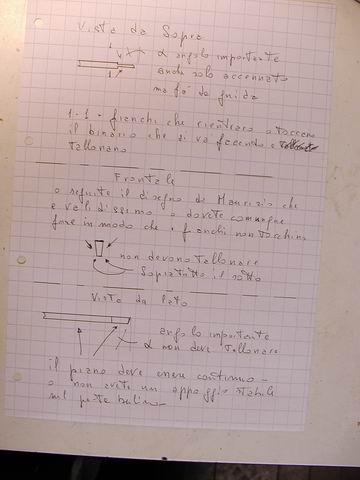 Vista da Sopra
α angolo importante
anche solo accennato
ma fa da guida
1
1-1 - fianchi che rientrano o toccano
il binario che si va facendo e
tallonano
Frontale
o seguite il disegno di Maurizio che
è validissimo o dovete comunque
fare in modo che i fianchi non tocchino
non devono tallonare
Sopratutto il sotto
Vista da lato
angolo importante
α non deve tallonare
il piano deve essere continuo -
o non avete un appoggio stabile
sul